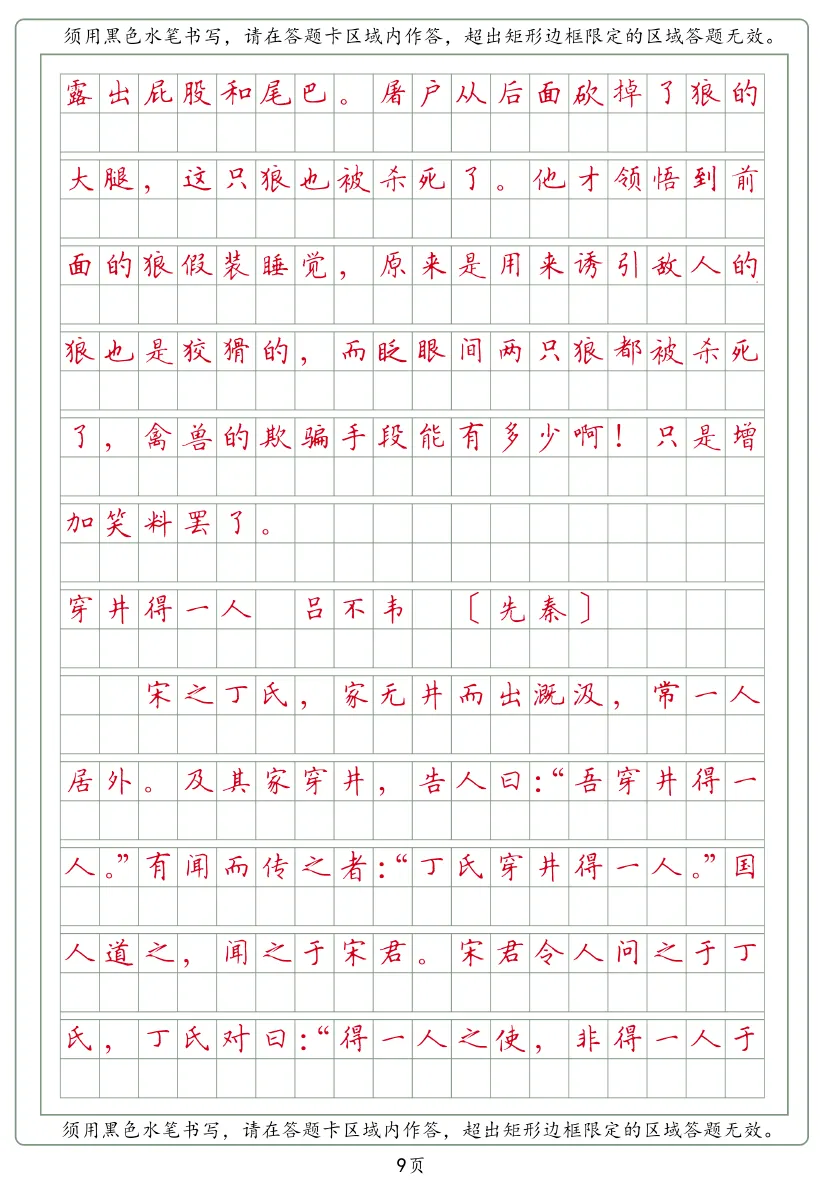 须用黑色水笔书写，请在答题卡区域内作答，超出矩形边框限定的区域答题无效。
露出屁股和尾巴。屠户从后面砍掉了狼的
大腿，这只狼也被杀死了。他才领悟到前
面的狼假装睡觉，原来是用来诱引敌人的
狼也是狡猾的，而眨眼间两只狼都被杀死
了，禽兽的欺骗手段能有多少啊！只是增
加笑料罢了。
穿井得一人　吕不韦　〔先秦〕
宋之丁氏，家无井而出溉汲，常一人
居外。及其家穿井，告人曰：“吾穿井得一
人。”有闻而传之者：“丁氏穿井得一人。”国
人道之，闻之于宋君。宋君令人问之于丁
氏，丁氏对曰：“得一人之使，非得一人于
须用黑色水笔书写，请在答题卡区域内作答，超出矩形边框限定的区域答题无效。
9页